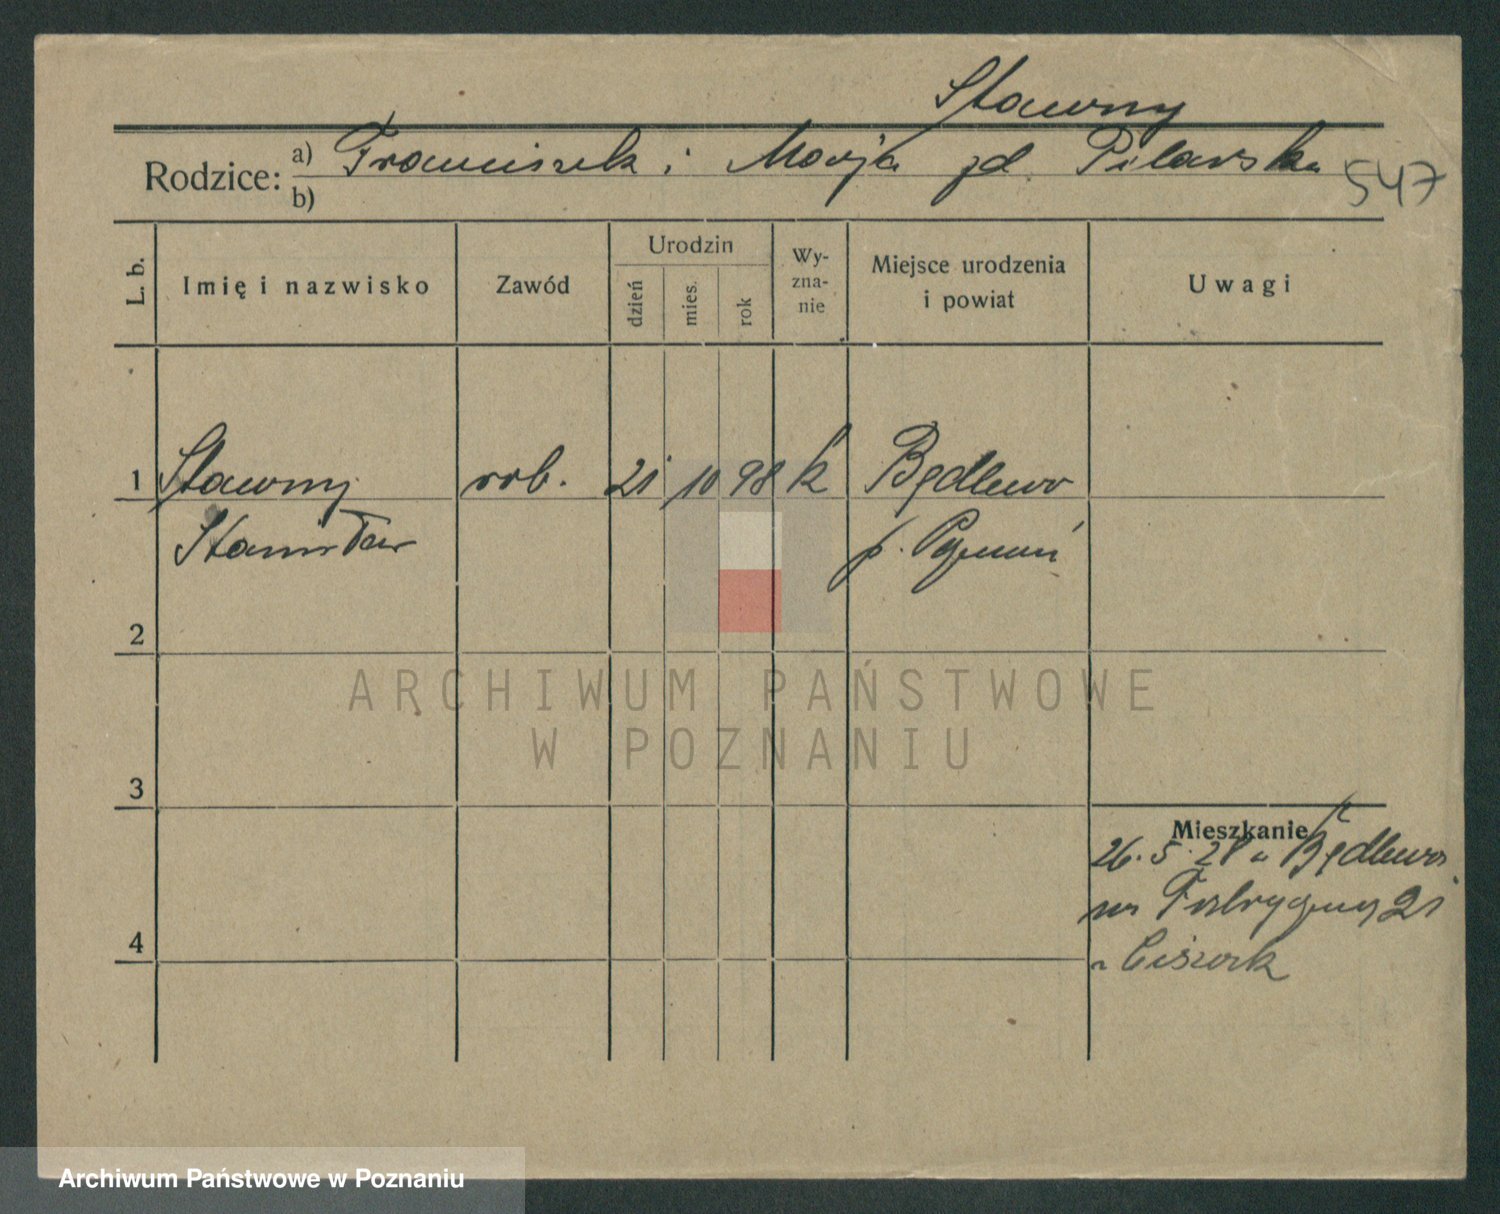 Stawny
Rodzice: a) Franciszek i Marja zd. Pilarska 547
b)
L. b. Imię i nazwisko Zawód Urodzin dzień mies. rok Wy-zna-nie Miejsce urodzenia i powiat Uwagi
1 Stawny rob. 21 10 98 k Będlewo
Stanisław p. Poznań
2
3
Mieszkanie
26. 5. 28 z Będlewa
na Fabryczną 21
4
ARCHIWUM PAŃSTWOWE
W POZNANIU
Archiwum Państwowe w Poznaniu